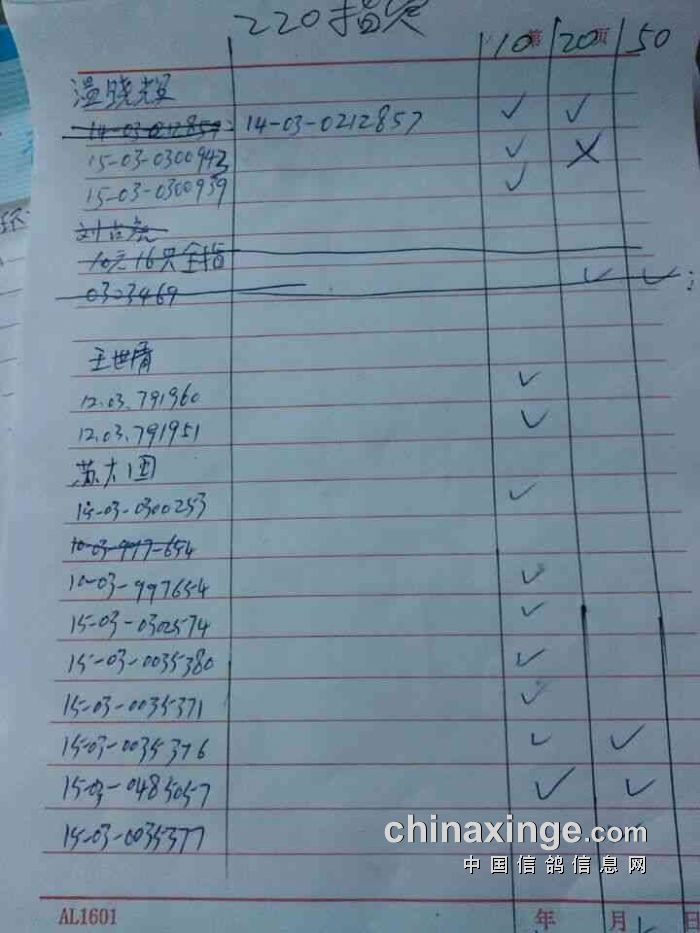 220指定
10 第 20 页 50
温晓辉
14-03-0212857 14-03-0212857 ✓ ✓
15-03-0300942 ✓ ✗
15-03-0300939 ✓
10元16只全指
0303469 ✓ ✓
王世
12.03.791960 ✓
12.03.791951 ✓
苏大国
15-03-0300253 ✓
10-03-997-654
10-03-997654 ✓
15-03-0302574 ✓
15-03-0035380 ✓
15-03-0035371 ✓
15-03-0035376 ✓ ✓
15-03-0485057 ✓ ✓
15-03-0035377
chinaxinge.com
中国信鸽信息网
AL1601 年 月 日